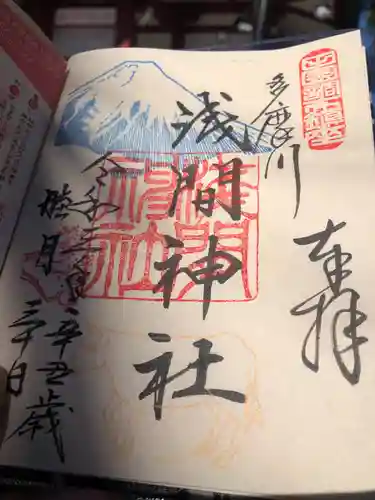 奉拝
多摩川
浅間神社
淺間
神社
令和三年辛丑歳
睦月三十日